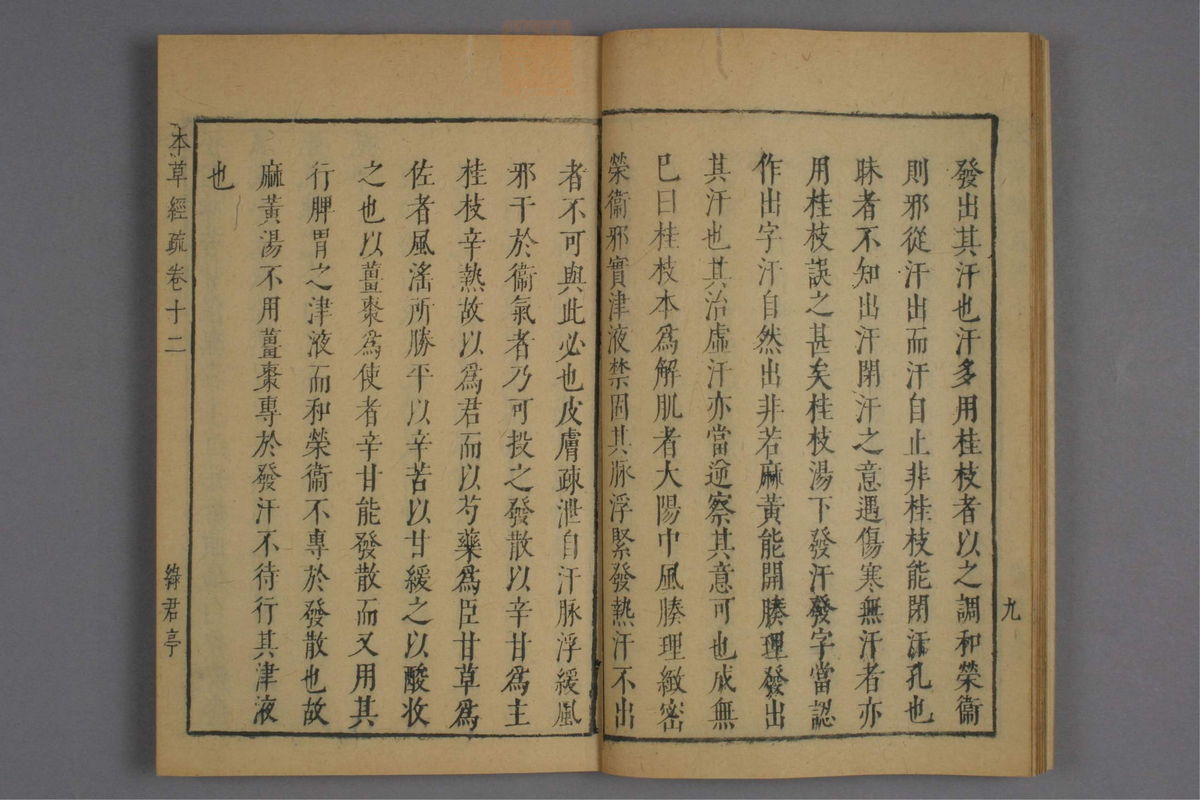 九
發出其汗也汗多用桂枝者以之調和榮衞
則邪從汗出而汗自止非桂枝能閉汗孔也
昧者不知出汗閉汗之意遇傷寒無汗者亦
用桂枝誤之甚矣桂枝湯下發汗發字當認
作出字汗自然出非若麻黃能開腠理發出
其汗也其治虛汗亦當逆察其意可也成無
巳曰桂枝本爲解肌者大陽中風腠理緻密
榮衞邪實津液禁固其脉浮緊發熱汗不出
者不可與此必也皮膚疎泄自汗脉浮緩風
邪干於衞氣者乃可投之發散以辛甘爲主
桂枝辛熱故以爲君而以芍藥爲臣甘草爲
佐者風滛所勝平以辛苦以甘緩之以酸收
之也以薑棗爲使者辛甘能發散而又用其
行脾胃之津液而和榮衞不專於發散也故
麻黃湯不用薑棗專於發汗不待行其津液
也
本草經疏卷十二
綠君亭